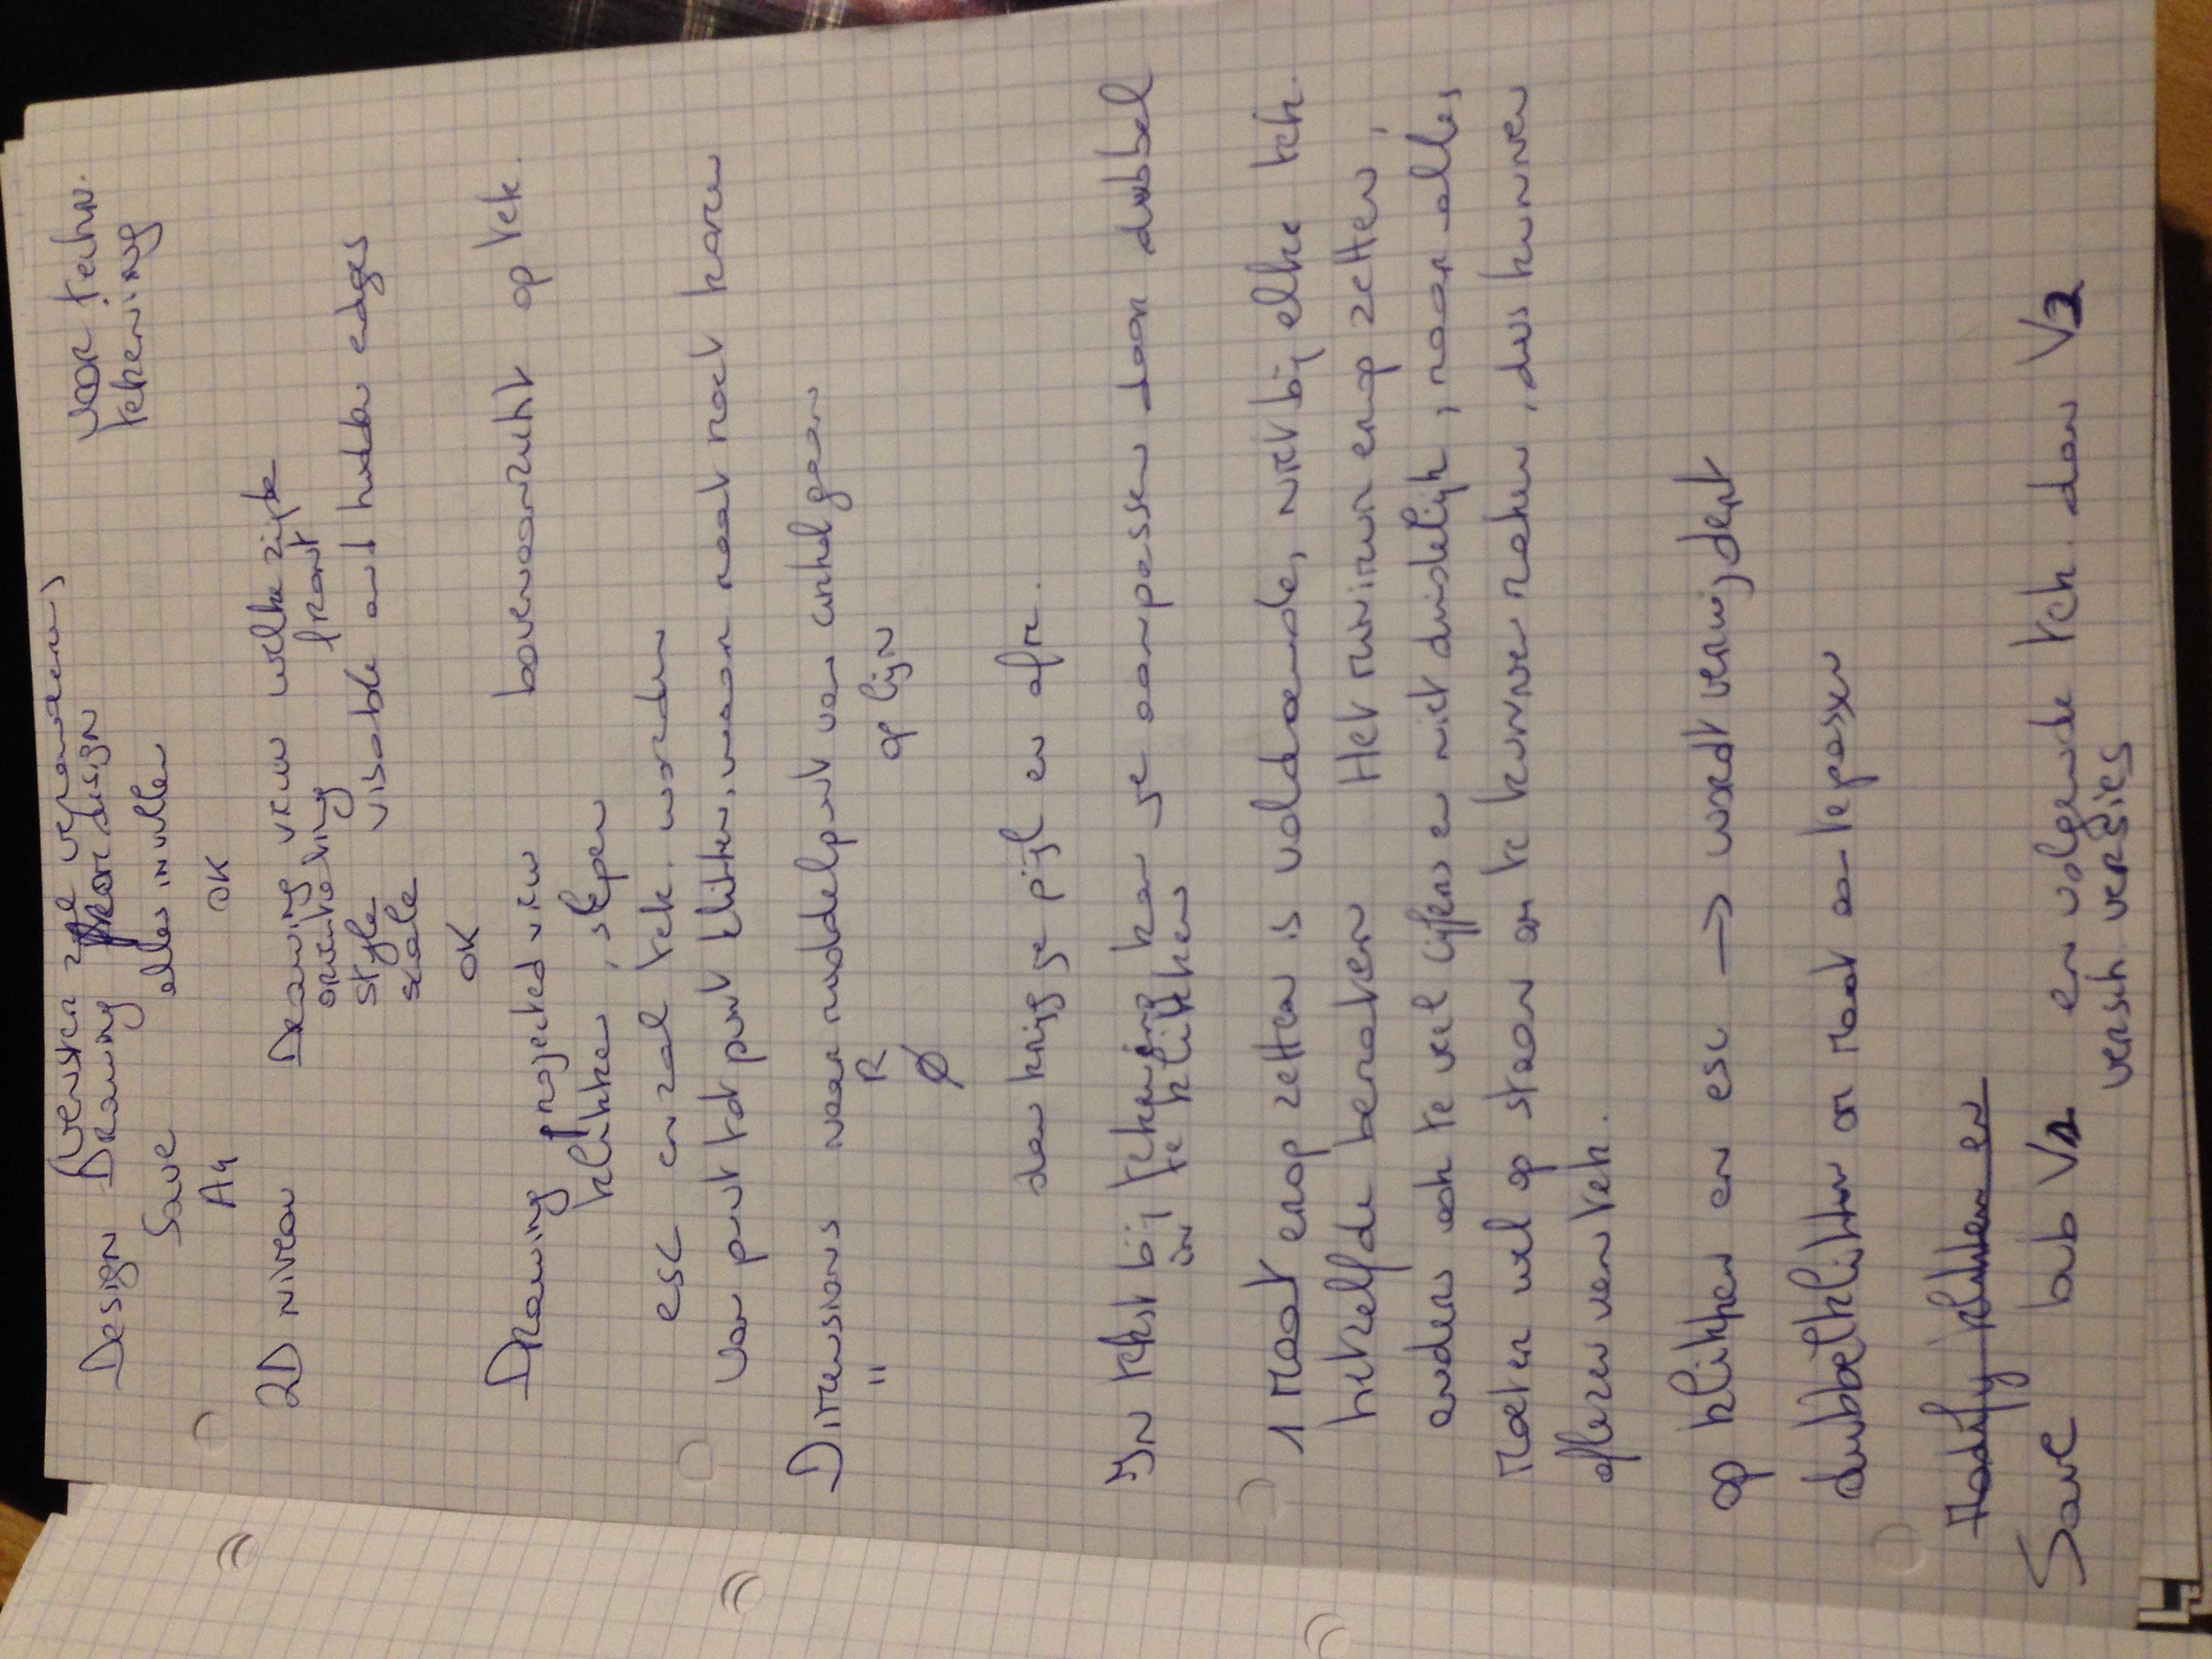 (venster zal veranderen)
Design Drawing from design
voor techn.
tekening
Save alles invullen
A4 OK
2D niveau Drawing view welke zijde
orientating front
style visable and hidden edges
scale
OK
Drawing projected view bovenaanzicht op tek.
klikken, slepen
esc en zal tek. worden
Van punt tot punt klikken, waar maat moet komen
Dimensions naar middelpunt van cirkel gaan
" R op lijn
Ø
dan krijg je pijl en afm.
In tekst bij tekening kan je aanpassen door dubbel
in te klikken
1 maat erop zetten is voldoende, niet bij elke tek.
hetzelfde bematen Het minimum erop zetten,
anders ook te veel cijfers en niet duidelijk, maar alles
moet er wel op staan om te kunnen maken, dus kunnen
aflezen van tek.
op klikken en esc → wordt verwijdert
dubbelklikken om maat aan te passen
Modify klikken en
Save bub V1 en volgende tek. dan V2
versch. versies